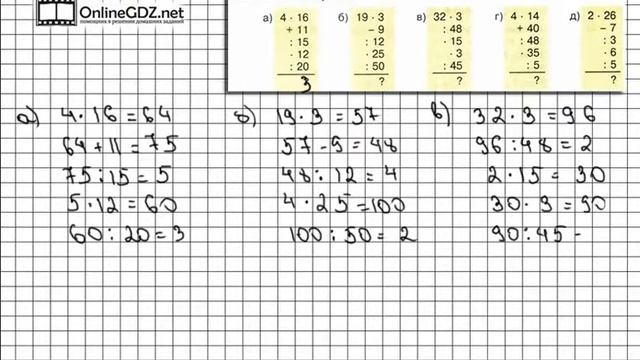 OnlineGDZ.net
помощники в решении домашних заданий
а) 4 · 16
+ 11
: 15
· 12
: 20
3
б) 19 · 3
− 9
: 12
· 25
: 50
?
в) 32 · 3
: 48
· 15
· 3
: 45
?
г) 4 · 14
+ 40
: 48
· 35
: 5
?
д) 2 · 26
− 7
: 3
· 6
: 5
?
а) 4 · 16 = 64
64 + 11 = 75
75 : 15 = 5
5 · 12 = 60
60 : 20 = 3
б) 19 · 3 = 57
57 - 9 = 48
48 : 12 = 4
4 · 25 = 100
100 : 50 = 2
в) 32 · 3 = 96
96 : 48 = 2
2 · 15 = 30
30 · 3 = 90
90 : 45 -